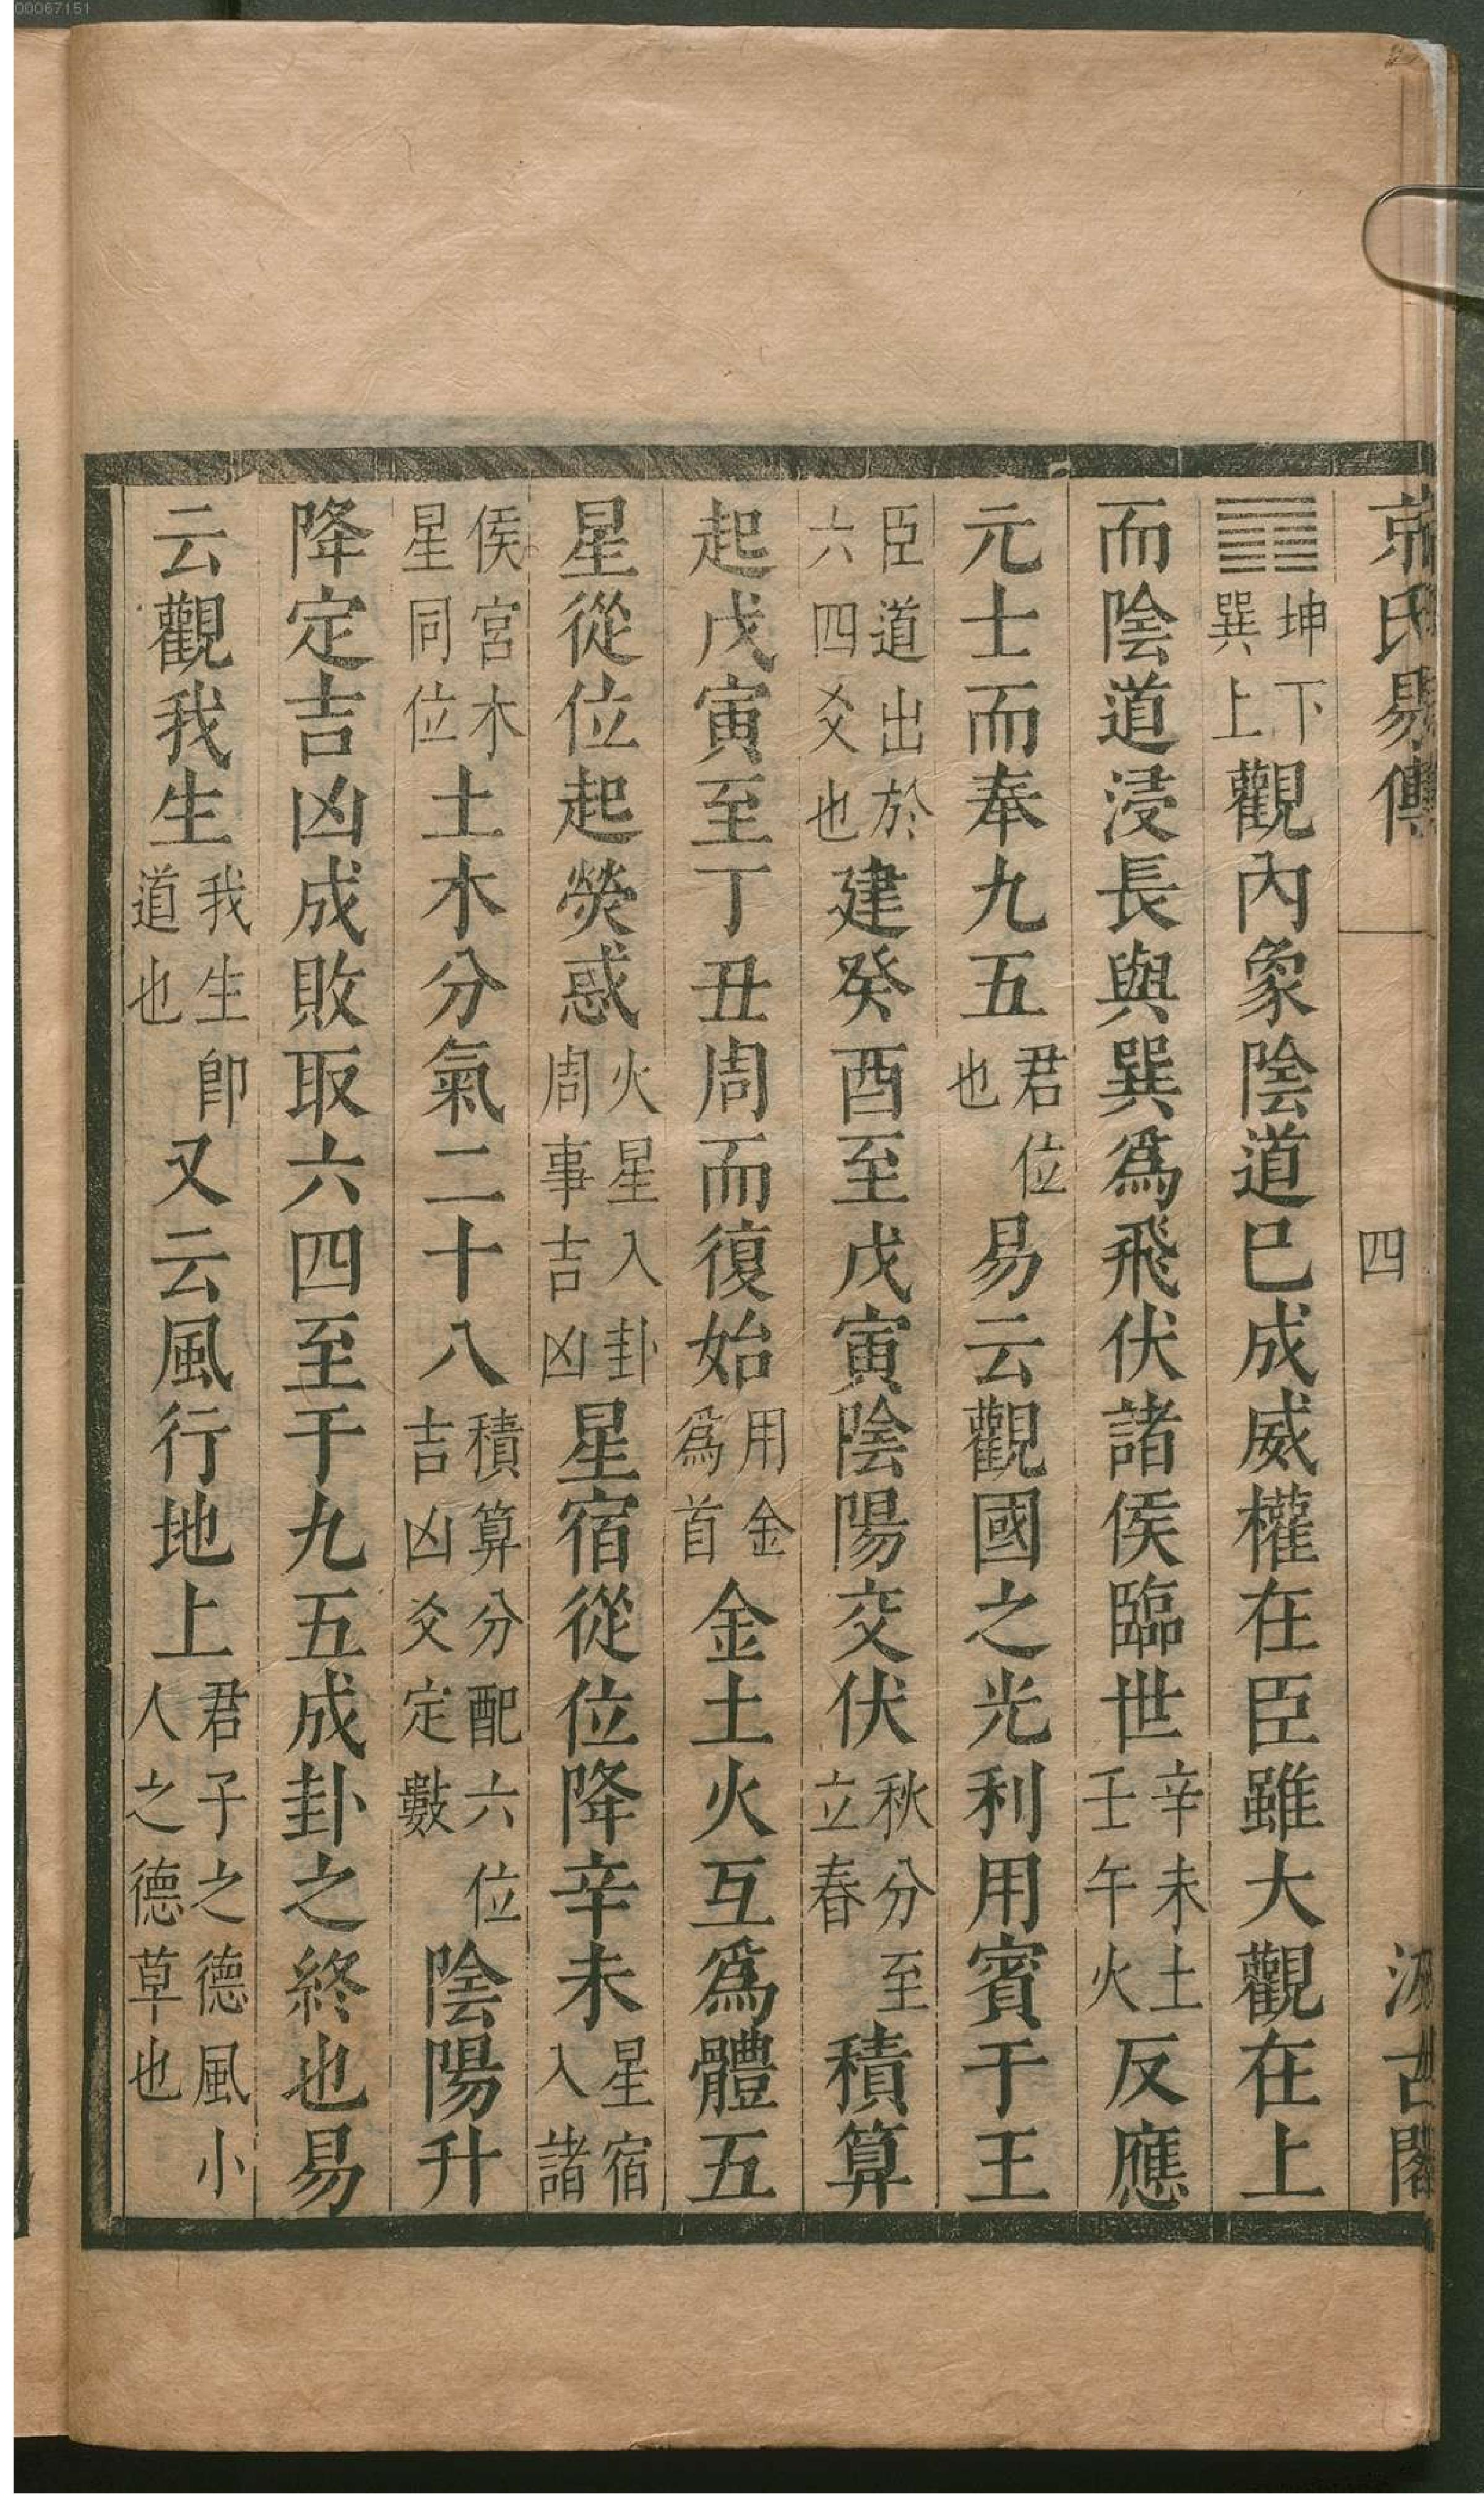 00067151
京氏易傳 四 汲古閣
䷓坤下巽上觀內象陰道已成威權在臣雖大觀在上
而陰道浸長與巽爲飛伏諸侯臨世辛未土壬午火反應
元士而奉九五君位也易云觀國之光利用賓于王
臣道出於六四爻也建癸酉至戊寅陰陽交伏秋分至立春積算
起戊寅至丁丑周而復始用金爲首金土火互爲體五
星從位起熒惑火星入卦周事吉凶星宿從位降辛未星宿入諸
侯宮木星同位土木分氣二十八積算分配六位吉凶爻定數陰陽升
降定吉凶成敗取六四至于九五成卦之終也易
云觀我生我生卽道也又云風行地上君子之德風小人之德草也